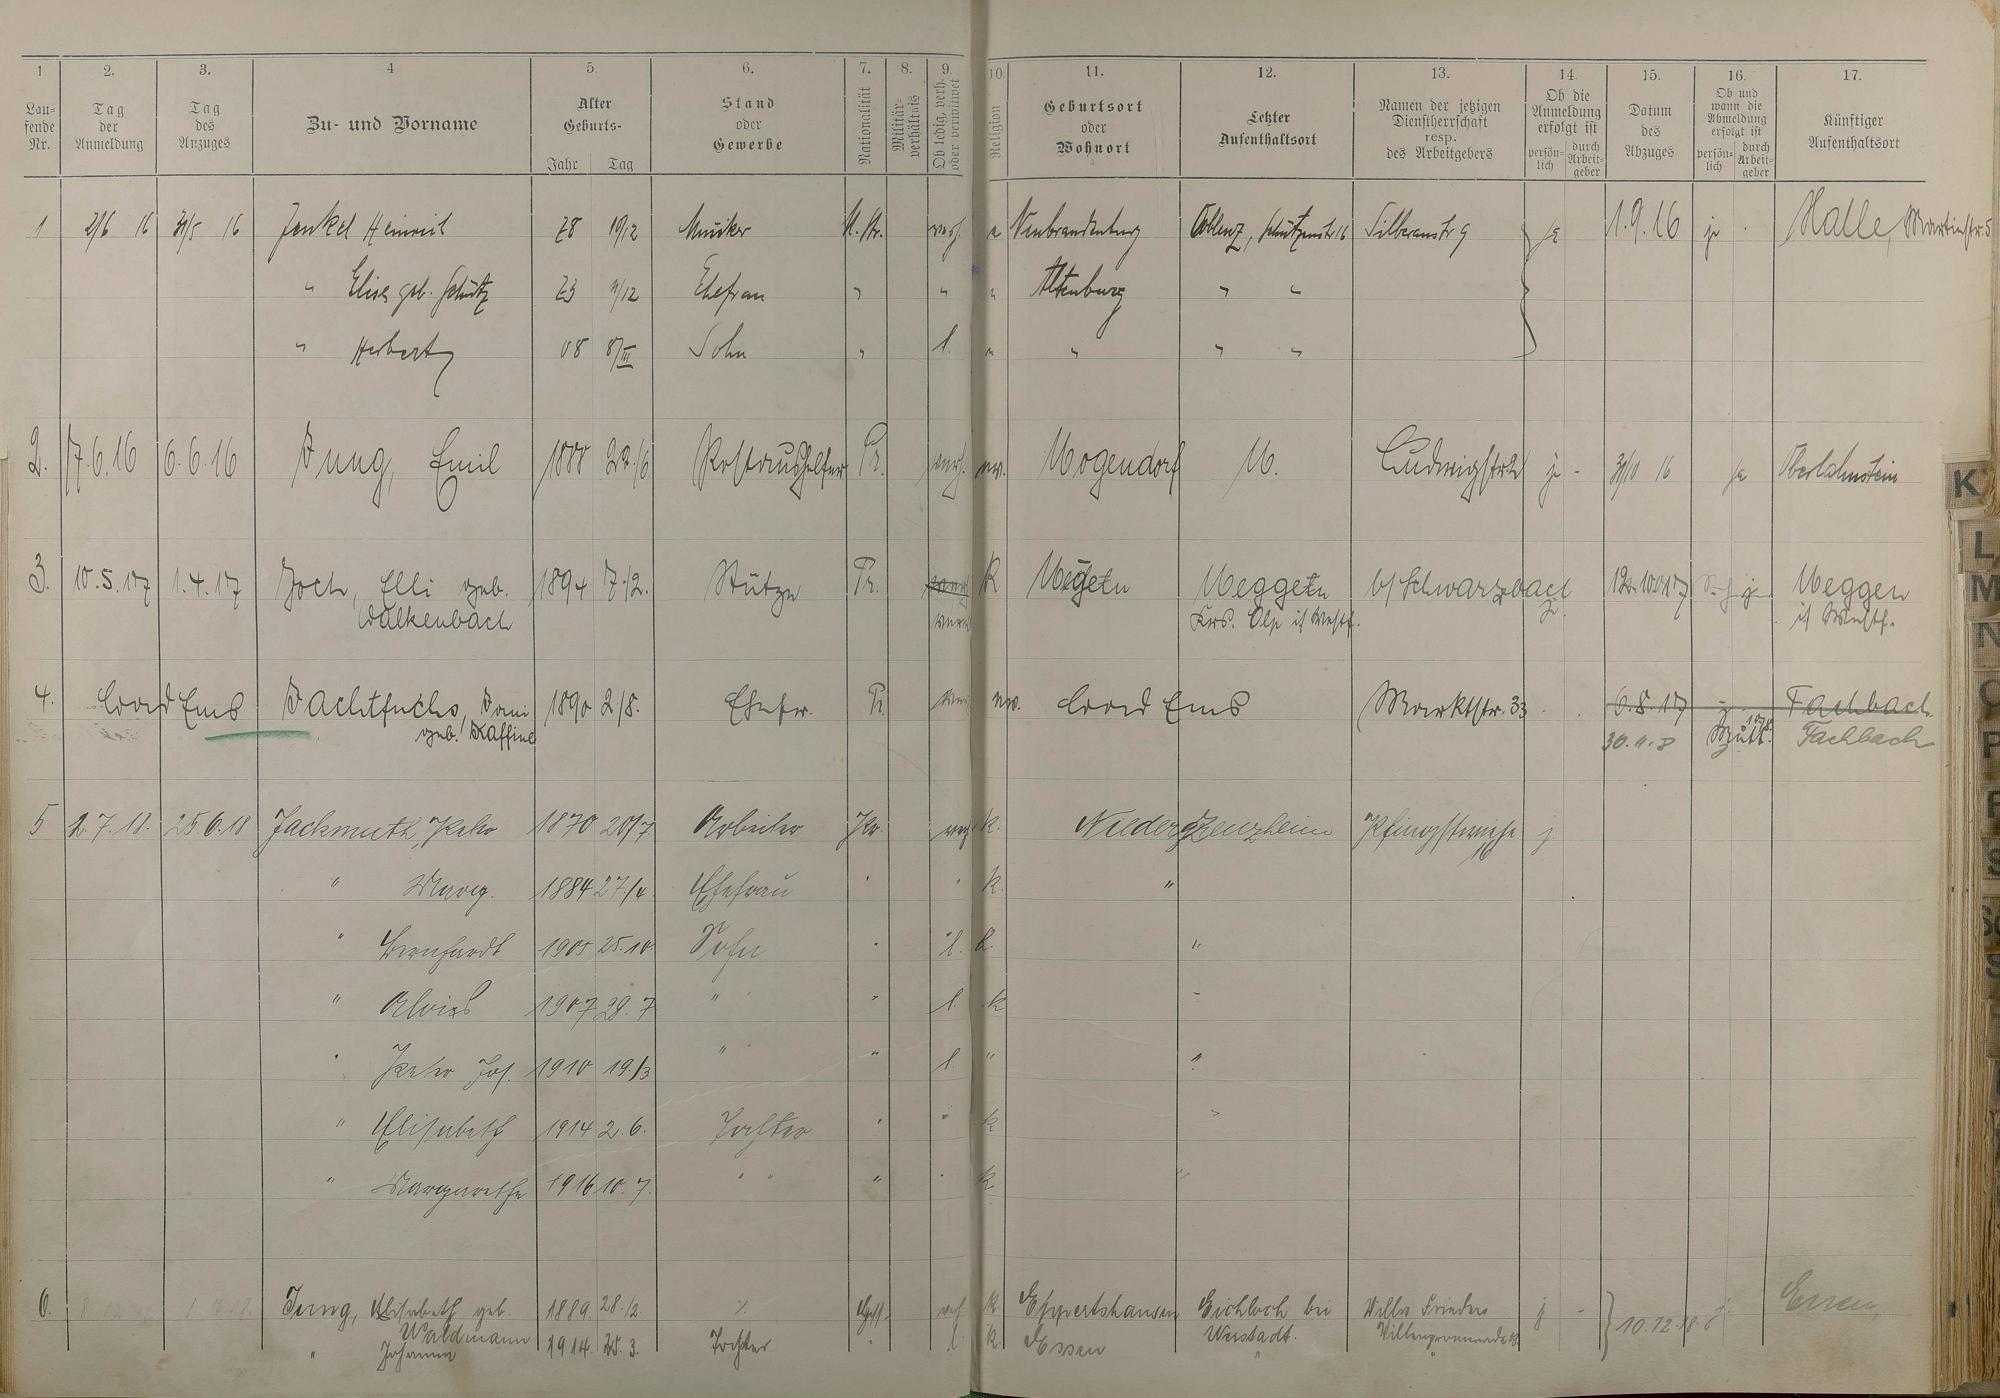 1 2. 3. 4 5. 6. 7. 8. 9. 10. 11. 12. 13. 14. 15. 16. 17.
Lau-
fende
Nr.
Tag
der
Anmeldung
Tag
des
Anzuges
Zu- und Vorname
Alter
Geburts-
Jahr Tag
Stand
oder
Gewerbe
Nationalität
Militär-
verhältnis
Ob ledig, verh.
oder verwitwet
Religion
Geburtsort
oder
Wohnort
Letzter
Aufenthaltsort
Namen der jetzigen
Dienstherrschaft
resp.
des Arbeitgebers
Ob die
Anmeldung
erfolgt ist
persön-
lich
durch
Arbeit-
geber
Datum
des
Abzuges
Ob und
wann die
Abmeldung
erfolgt ist
persön-
lich
durch
Arbeit-
geber
Künftiger
Aufenthaltsort
1 2/6 16 31/5 16 Jenkel Heinrich 78 10/12 Musiker verh. Neubrandenburg Coblenz, Schützenstr 16 Silberaustr 9 ja 1.9.16 ja Halle, Martinstr. 5
" Elise geb. Schütz Ehefrau " " Altenburg " "
" Herbert 08 8/III Sohn " l. " " " "
2. 17.6.16 6.6.16 Jung, Emil 1888 22./6 Postaushelfer Pr. verh. ev. Mogendorf M. Ludwigstr. 31/10 16 ja Oberlahnstein
3. 10.5.17 1.4.17 Joch, Elli geb. 1894 7.12. Stütze Pr. K Meggen Meggen b/Schwarzbach 12.10.17 Meggen
Walkenbach Krs. Olp i/Westf. i/ Westf.
4. Bad Ems Jachtfuchs, 1890 2/8. Ehefr. Pr ev. Bad Ems Marktstr. 33 6.8.17 Fachbach
geb. 30.11.8 Fachbach
5 2.7.18. 25.6.18 Jackmuth, Peter 1870 20/7 Arbeiter Pr. verh. k. Niederzeuzheim Pfingstwiese j.
16
" Marg. 1884 27/4 Ehefrau " " k. "
" Bernhardt 1905 25.10 Sohn " l. k. "
" Alois 1907 29.7 " " l. k "
" Peter Jos. 1910 19./3 " " l. " "
" Elisabeth 1914 2.6. Tochter " " k "
" Margarethe 1916 10.7. " " " " k "
6. Jung, Elisabeth geb. 1889. 28./2. Hess. verh. k Eppertshausen Eichloch bei Villa Frieden j - 10.12.18 j. Essen
Waldmann Wörstadt. Villenpromenade
" Johanna 1914. 25.3. Tochter " l k Essen " "
K
L
M
N
O
P
R
S